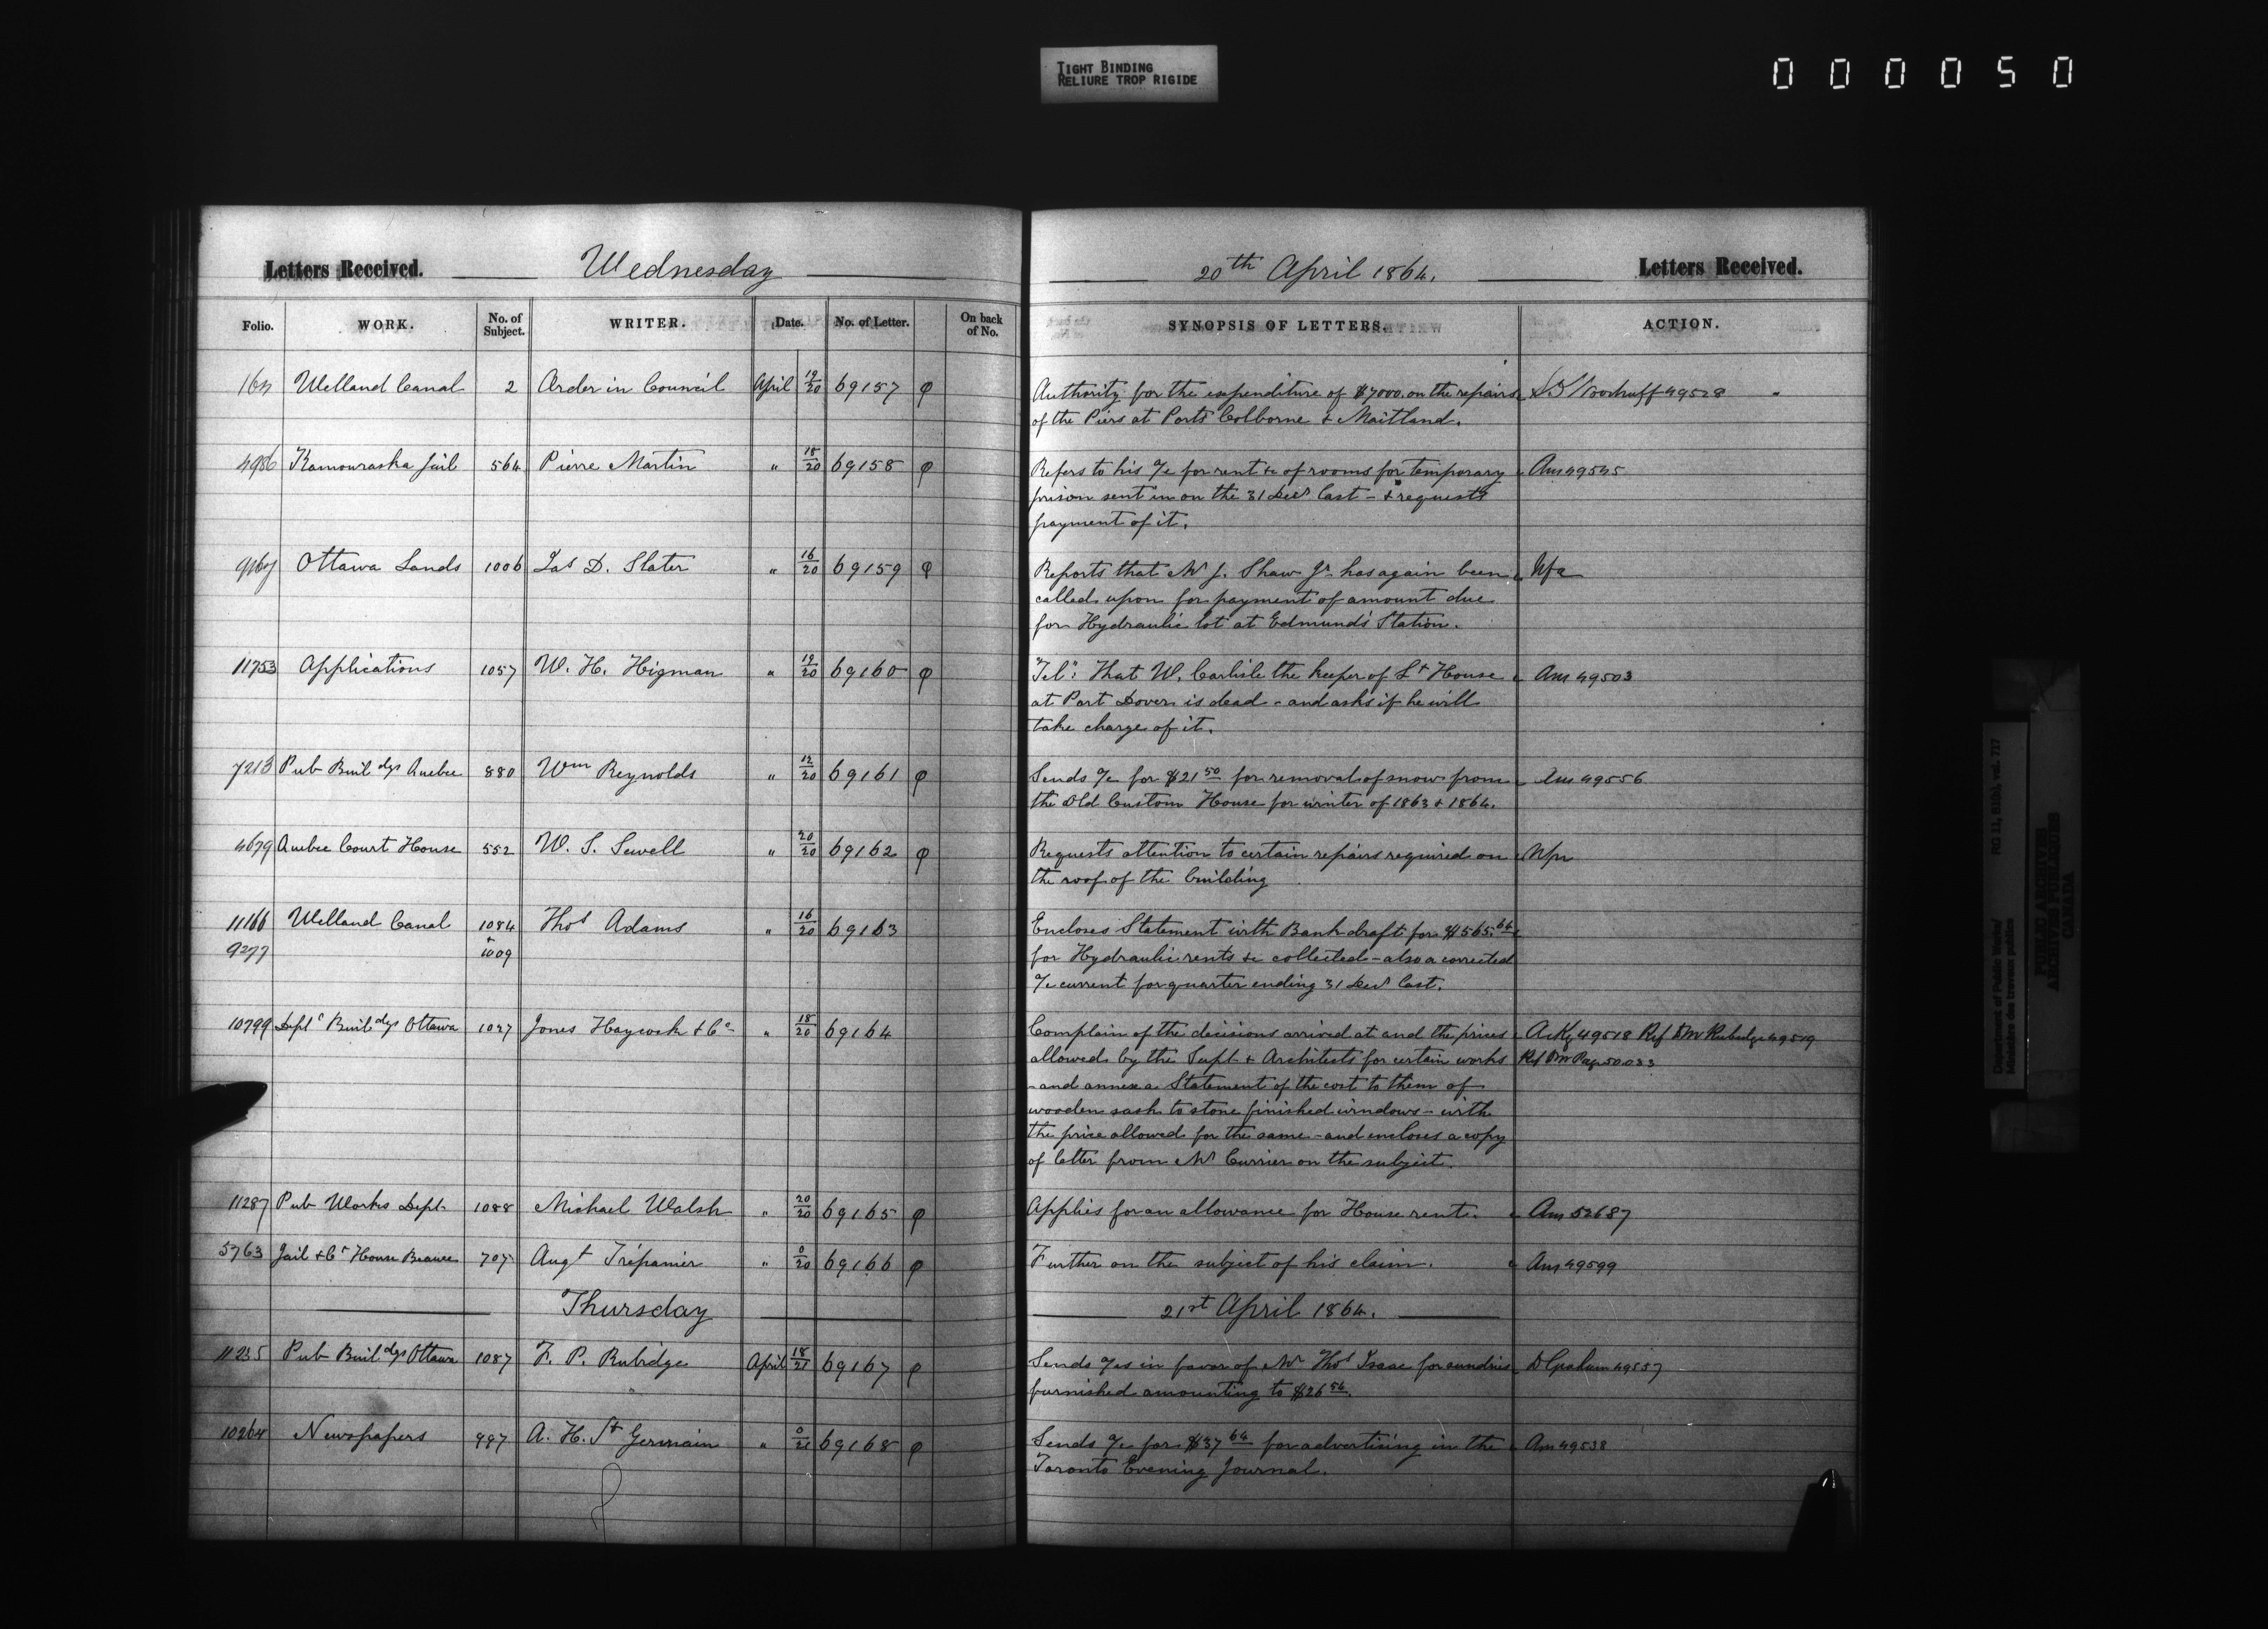 TIGHT BINDING
RELIURE TROP RIGIDE
000050
Letters Received. Wednesday 20th April 1864. Letters Received.
Folio. WORK. No. of Subject. WRITER. Date. No. of Letter. On back of No. SYNOPSIS OF LETTERS. ACTION.
Welland Canal 2 Order in Council April 19/20 69157 φ Authority for the expenditure of $7000. on the repairs Woodruff 49528
of the Piers at Ports Colborne & Maitland.
4986 Kamouraska Jail 564 Pierre Martin " 18/20 69158 φ Refers to his a/c for rent &c of rooms for temporary Ans 49545
prison sent in on the 31 Decr last - & requests
payment of it.
Ottawa Lands 1006 Jas D. Slater " 16/20 69159 φ Reports that Mr J. Shaw Jr has again been Nfa
called upon for payment of amount due
for Hydraulic lot at Edmunds Station.
11753 Applications 1057 W. H. Higman " 19/20 69160 φ "Tel": That W. Carlisle the keeper of Lt House Ans 49503
at Port Dover is dead - and asks if he will
take charge of it.
7213 Pub Buildgs Quebec 880 Wm Reynolds " 12/20 69161 φ Sends a/c for $21 50 for removal of snow from Ans 49556
the Old Custom House for winter of 1863 & 1864.
4679 Quebec Court House 552 W. S. Sewell " 20/20 69162 φ Requests attention to certain repairs required on
the roof of the building
11166 Welland Canal 1084 Thos Adams " 16/20 69163 Encloses Statement with Bank draft for $565.64
9277 & 1009 for Hydraulic rents &c collected - also a corrected
a/c current for quarter ending 31 Decr last.
10799 Deptl Buildgs Ottawa 1027 Jones Haycock & Co " 18/20 69164 Complain of the decisions arrived at and the prices Ackg 49518 Ref to Mr Rubidge 49519
allowed by the Supt & Architects for certain works Ref to Mr Page 50033
- and annex a Statement of the cost to them of
wooden sash to stone finished windows - with
the price allowed for the same - and encloses a copy
of letter from Mr Currier on the subject.
11287 Pub Works Dept. 1088 Michael Walsh " 20/20 69165 φ Applies for an allowance for House rent. Ans 52687
5763 Jail & Ct House Beauce 707 Augt Trépanier " 0/20 69166 φ Further on the subject of his claim. Ans 49599
Thursday 21st April 1864.
11235 Pub Buildgs Ottawa 1087 F. P. Rubidge April 18/21 69167 φ Sends a/cs in favor of Mr Thos Isaac for sundries D Graham 49557
furnished amounting to $26 56.
10264 Newspapers 997 A. H. St Germain " 0/21 69168 φ Sends a/c for $37 64 for advertising in the Ans 49538
Toronto Evening Journal.
Department of Public Works/
Ministère des travaux publics
RG 11, B1(b), vol. 717
PUBLIC ARCHIVES
ARCHIVES PUBLIQUES
CANADA